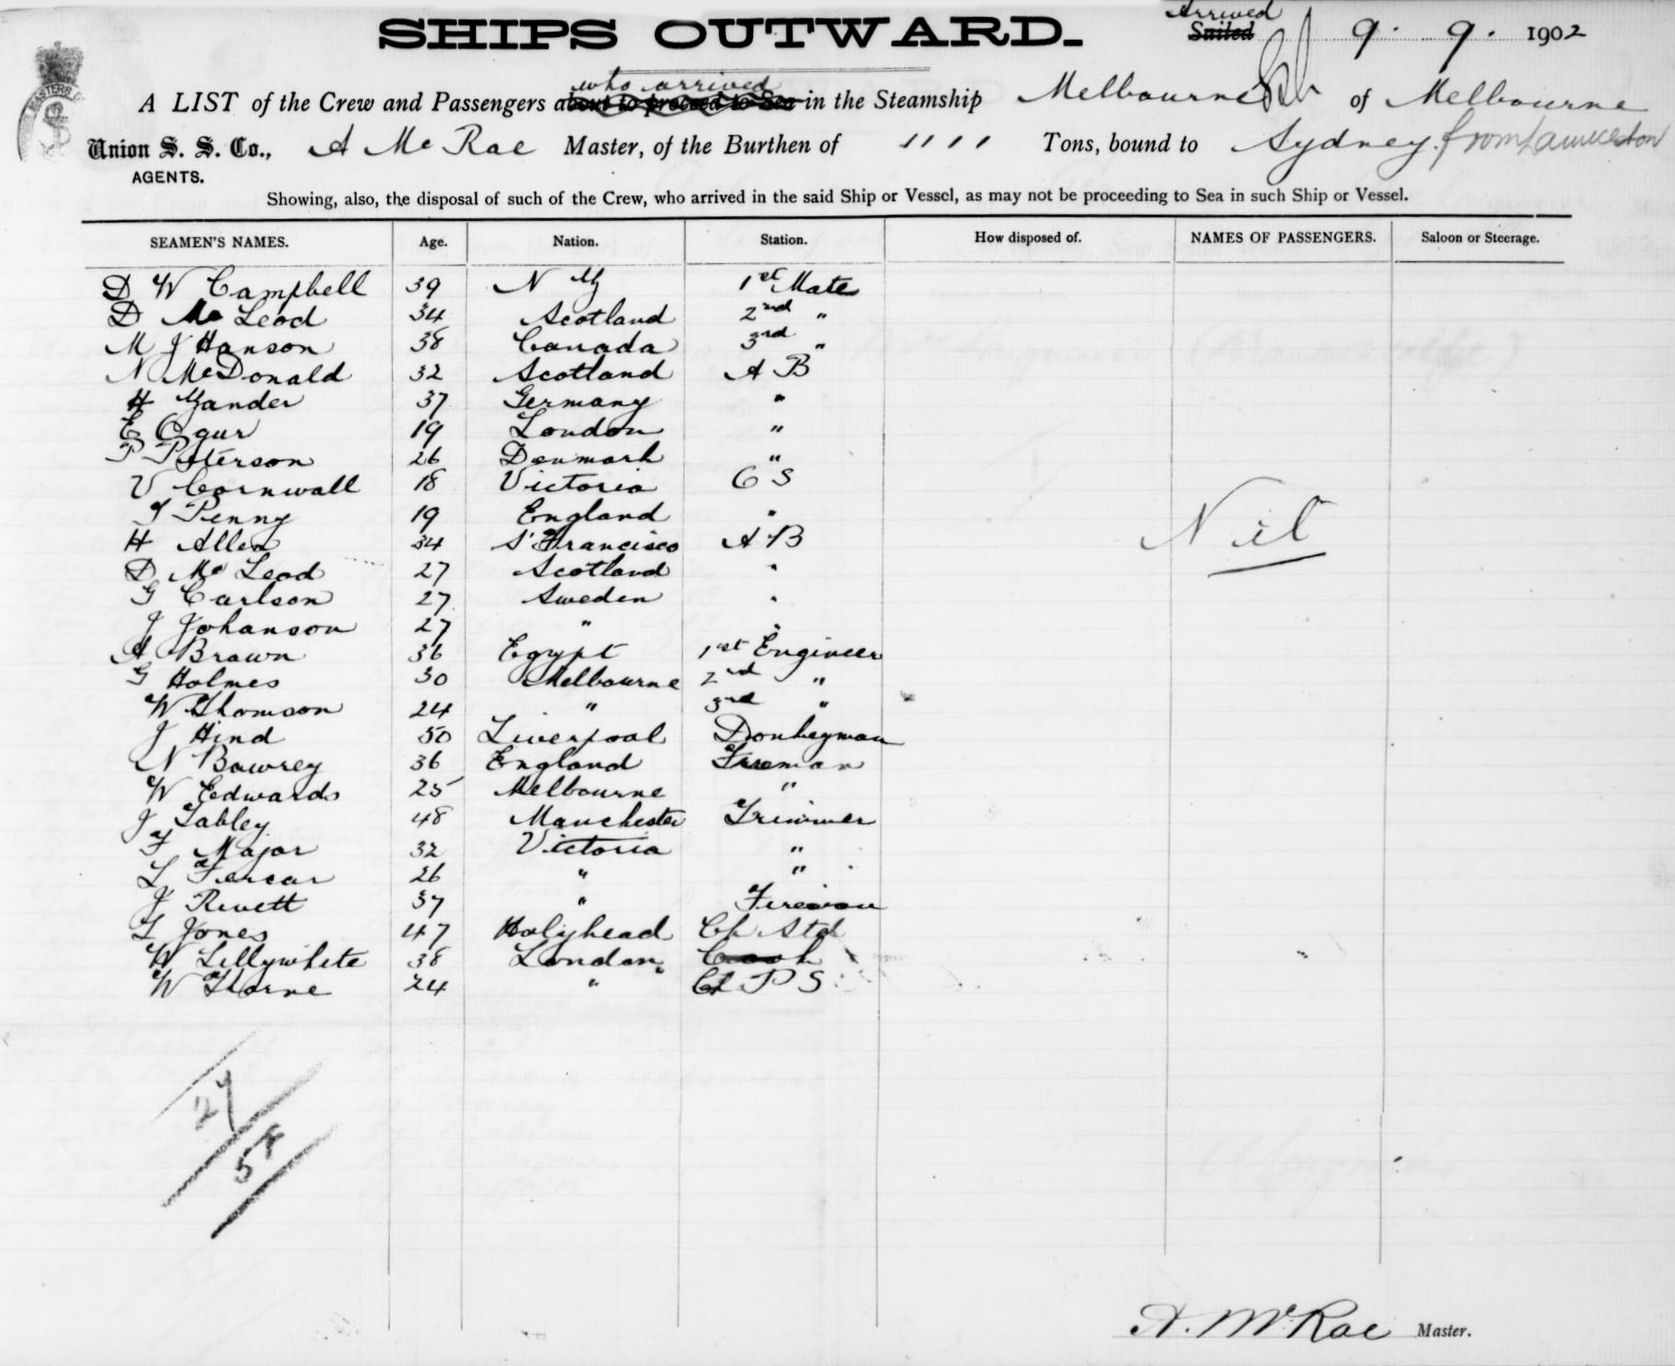 SHIPS OUTWARD.
Arrived
Sailed 9. 9. 1902
who arrived
A LIST of the Crew and Passengers about to proceed to Sea in the Steamship Melbourne of Melbourne
Union S. S. Co., A McRae Master, of the Burthen of 1111 Tons, bound to Sydney from Launceston
AGENTS.
Showing, also, the disposal of such of the Crew, who arrived in the said Ship or Vessel, as may not be proceeding to Sea in such Ship or Vessel.
SEAMEN'S NAMES. Age. Nation. Station. How disposed of. NAMES OF PASSENGERS. Saloon or Steerage.
D W Campbell 39 N Z 1st Mate
D Mc Leod 34 Scotland 2nd "
M J Hanson 38 Canada 3rd "
N McDonald 32 Scotland A B
H Zander 37 Germany "
E Ogur 19 London "
P Peterson 26 Denmark "
V Cornwall 18 Victoria O S
T Penny 19 England "
H Allen 34 S' Francisco A B
D Mc Leod 27 Scotland "
G Carlson 27 Sweden "
J Johanson 27 " "
A Brown 36 Egypt 1st Engineer
G Holmes 30 Melbourne 2nd "
W Thomson 24 " 3rd "
J Hind 50 Liverpool Donkeyman
N Bowrey 36 England Fireman
W Edwards 25 Melbourne "
J Tabley 48 Manchester Trimmer
F Major 32 Victoria "
L 26 " "
J Rivett 37 " Fireman
T Jones 47 Holyhead Ch Std
W Lillywhite 38 London Cook
W Thorne 24 " Ch P S
Nil
27
58
A. McRae Master.